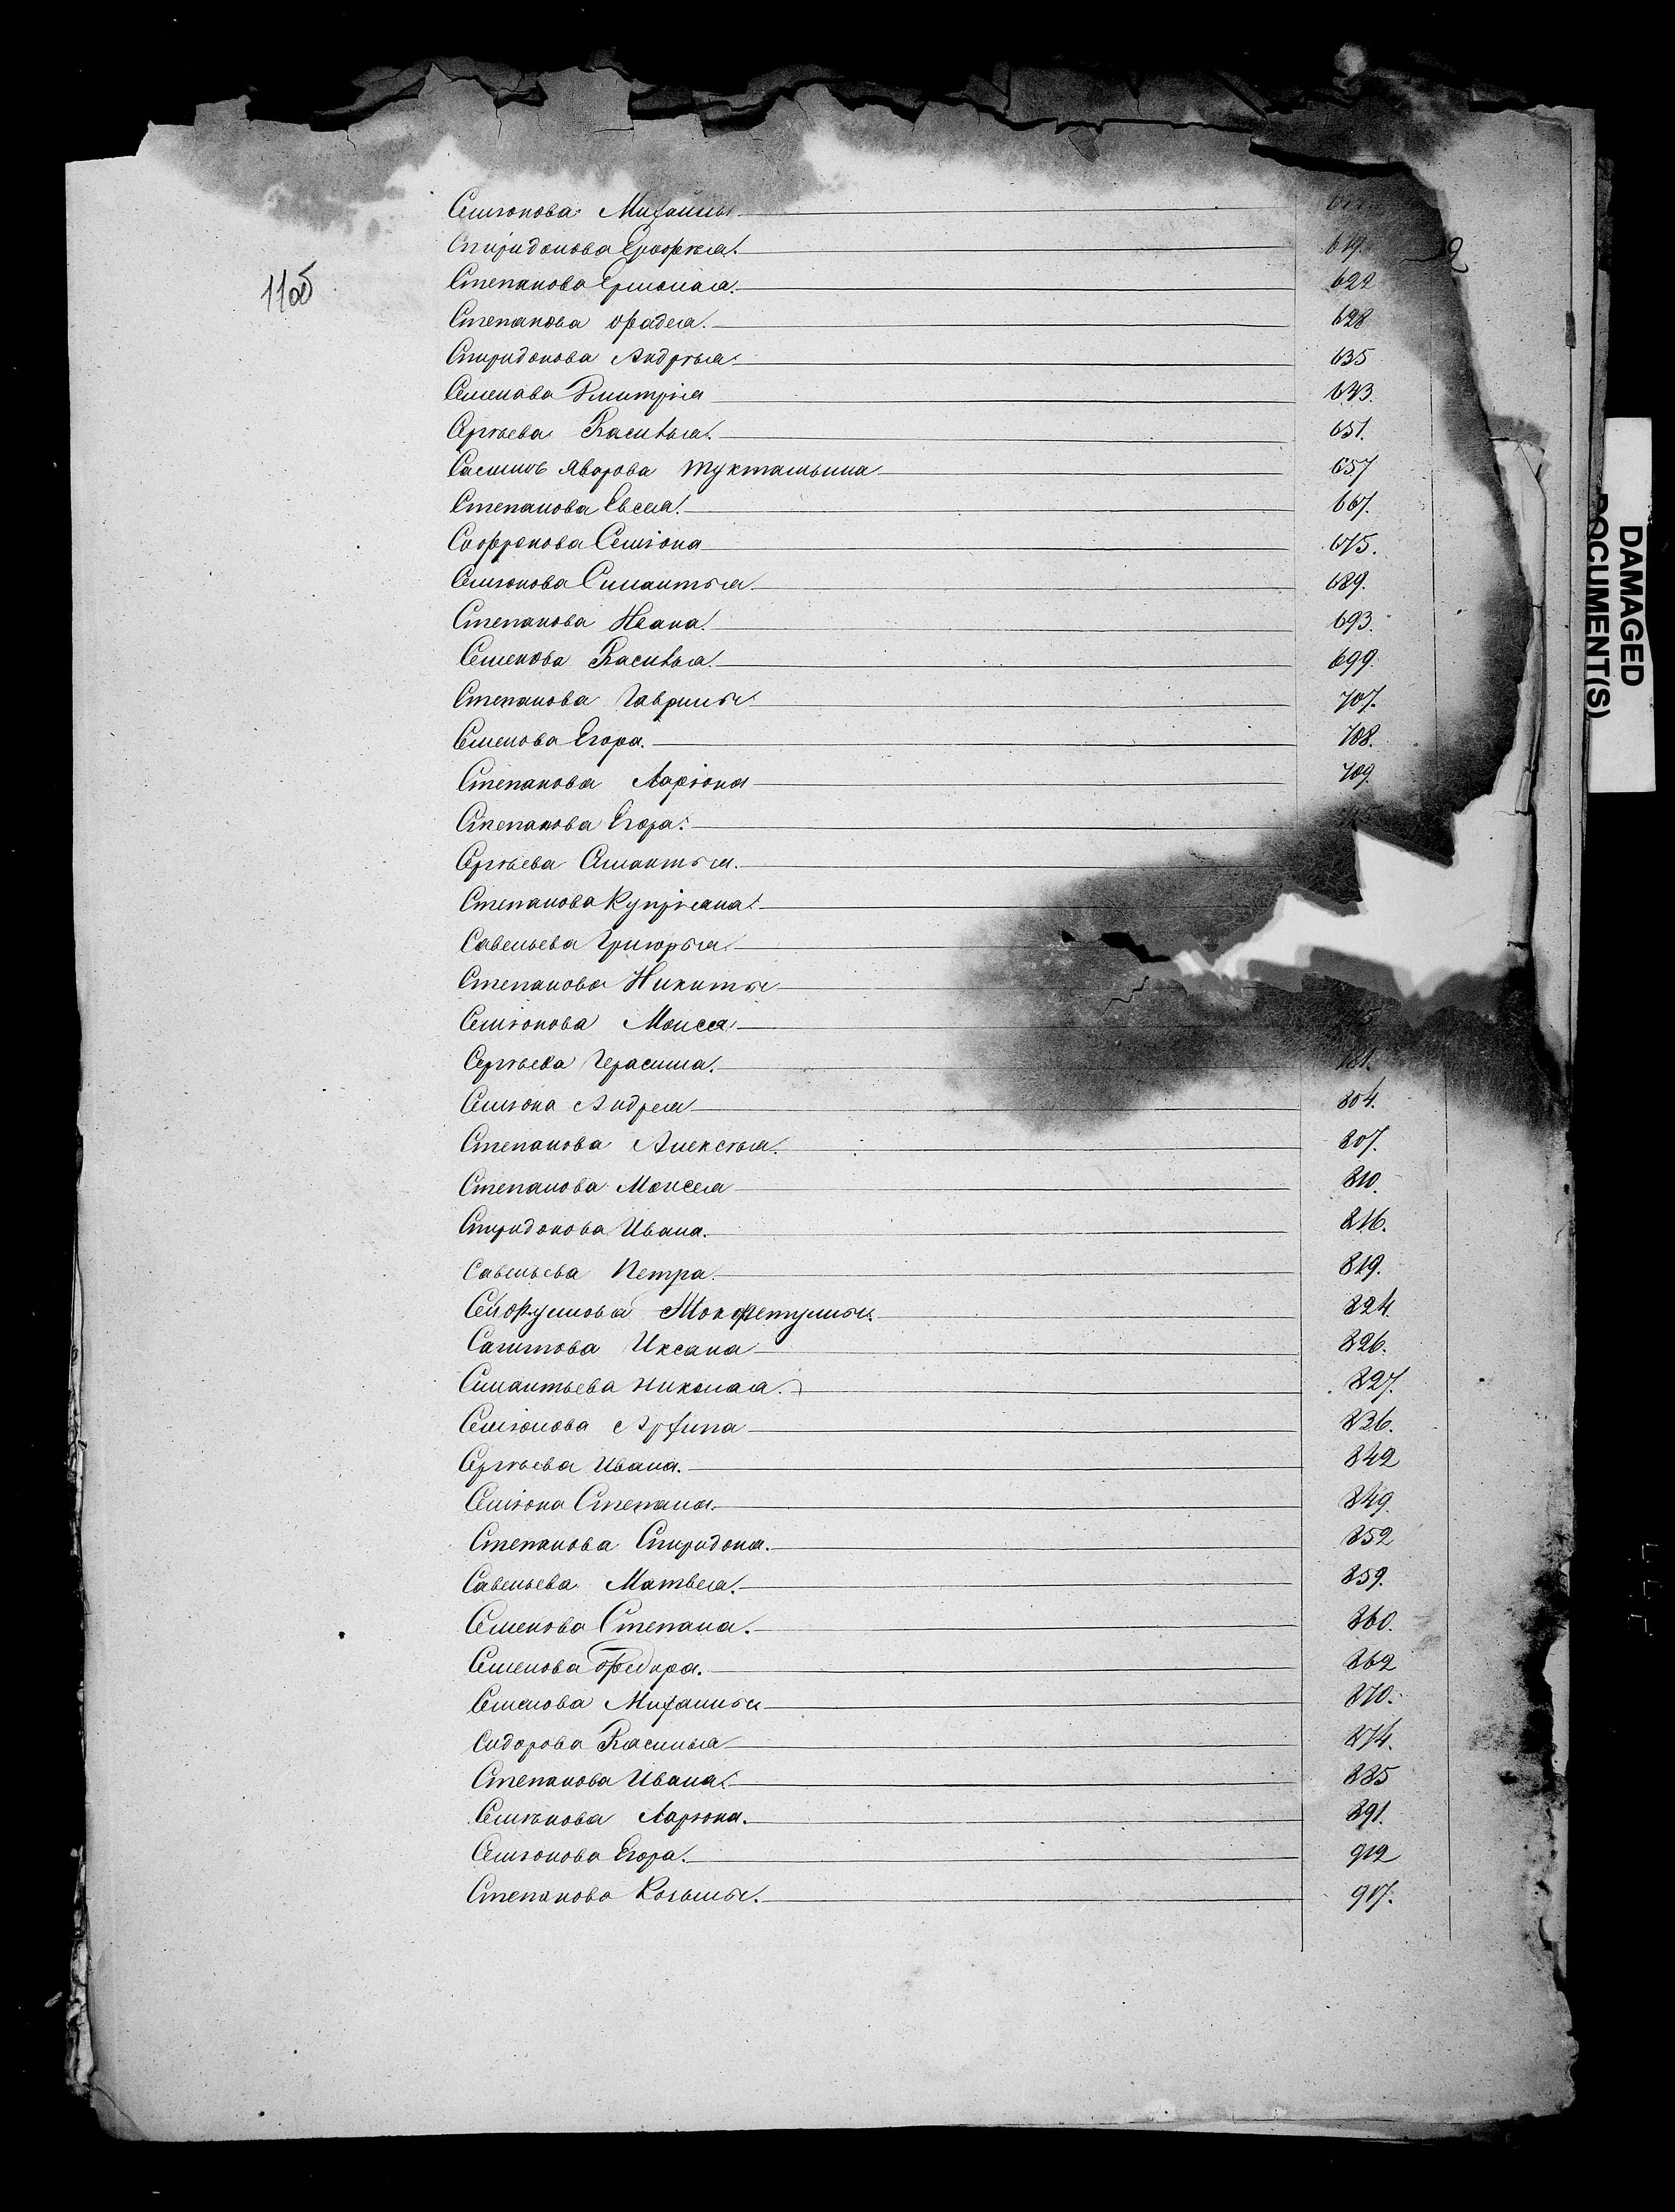 Семіонова Михаилы
Спиридонова Ерофея. 619.
Степанова Ермолая. 622
Степанова Фадея. 628
Спиридонова Андрѣя 635
Семенова Дмитрія 643.
Сергѣева Василья. 651.
Яворова 657
Степанова Евсея. 667.
Софронова Семіона 675.
Семіонова Силантья 689.
Степанова Ивана. 693.
Семенова Василья. 699.
Степанова Гаврилы 707.
Семенова Егора. 708.
Степанова Ларіона 709.
Степанова Егора.
Сергѣева Силантья.
Степанова Купріяна
Савельева Григорья.
Степанова Никиты
Семіонова Моисея
Сергѣева Герасима.
Семіона Андрея 804.
Степанова Алексѣя. 807.
Степанова Моисея 810.
Спиридонова Ивана. 816.
Савельева Петра. 819.
824.
Сагитова Иксана 826.
Силантьева Николая. 827.
Семіонова Архипа 836.
Сергѣева Ивана. 842
Семіона Степана. 849.
Степанова Спиридона. 852
Савельева Матвея. 859.
Семенова Степана. 860.
Семенова Федора. 862
Семенова Михаилы 870.
Сидорова Василья 874.
Степанова Ивана. 885
Семіонова Ларіона. 891.
Семіонова Егора. 912
Степанова Козьмы. 917.
110б
DAMAGED
DOCUMENT(S)